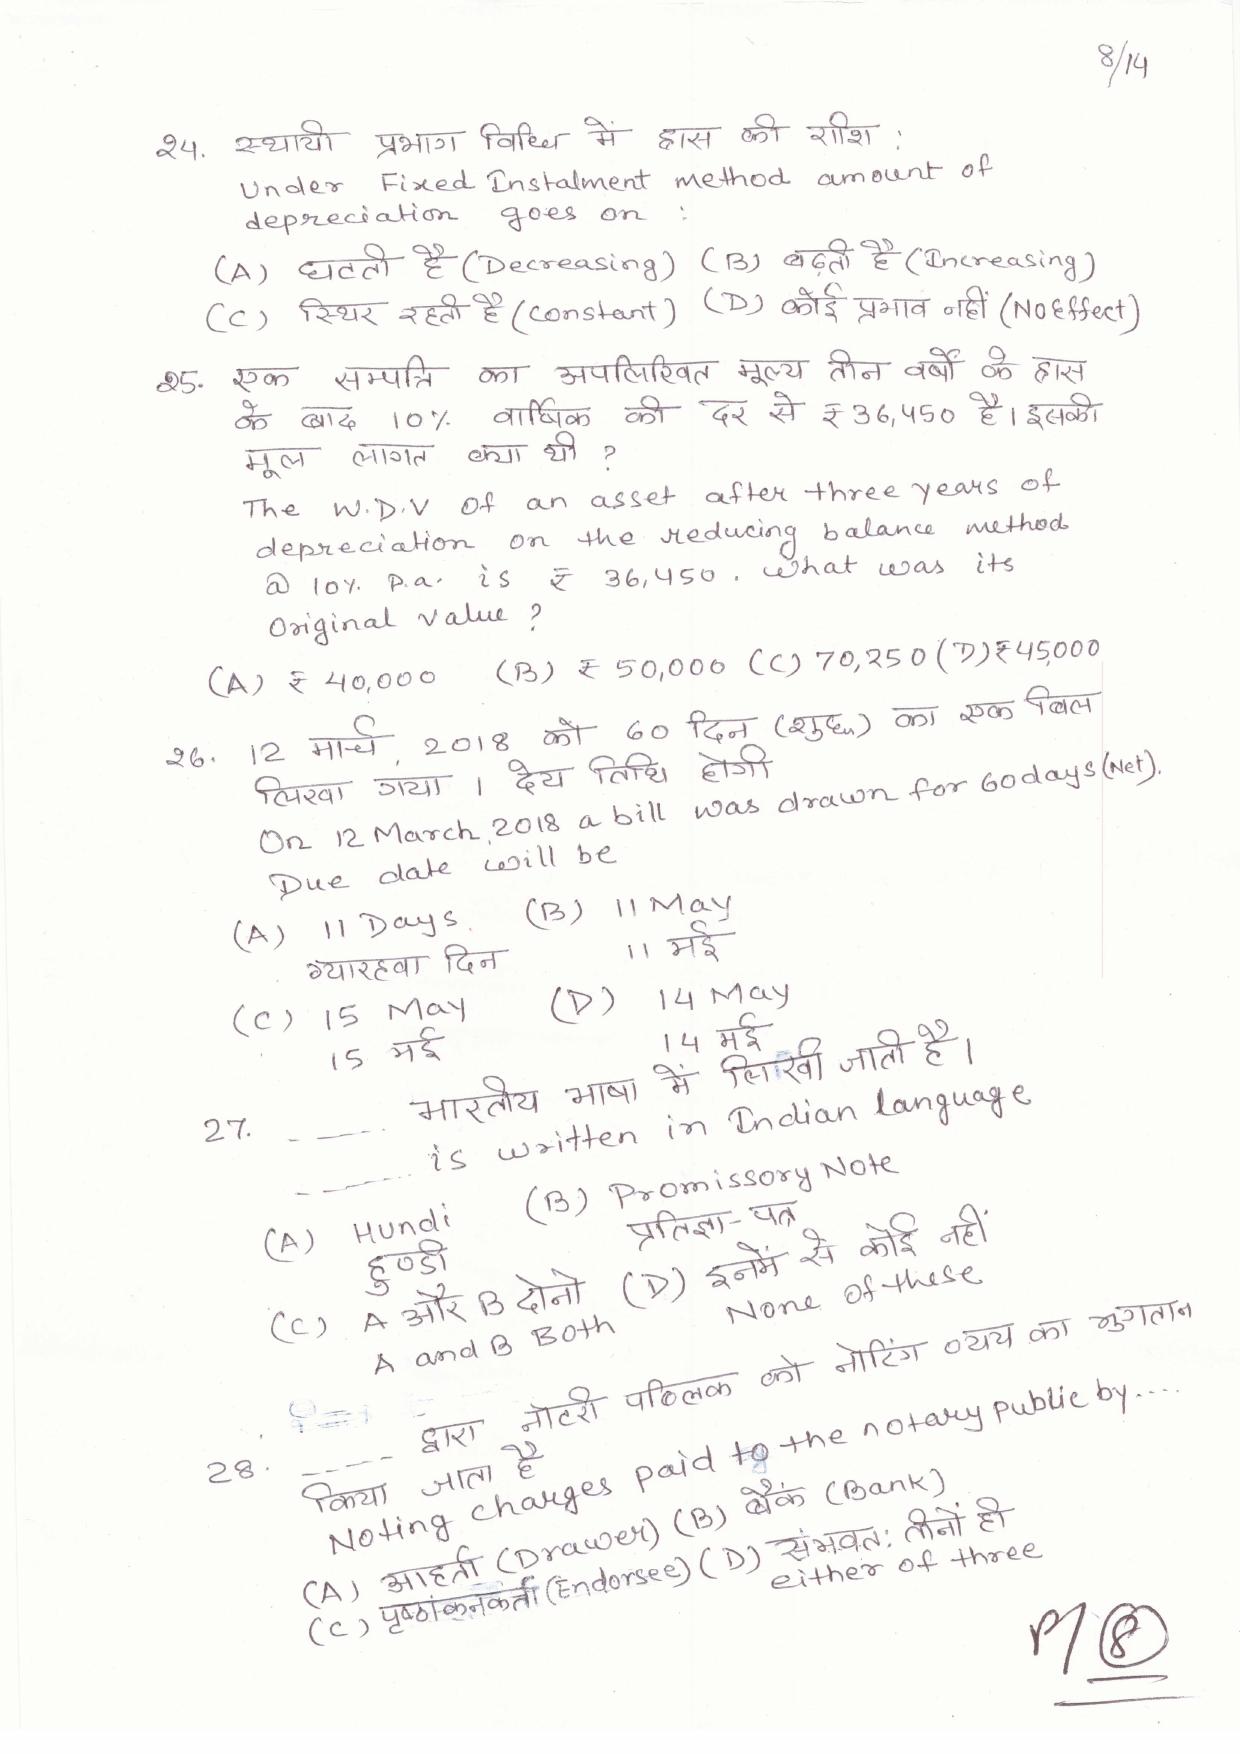 8/14
24. स्थायी प्रभाग विधि में ह्रास की राशि :
Under Fixed Instalment method amount of
depreciation goes on :
(A) घटती है (Decreasing) (B) बढ़ती है (Increasing)
(C) स्थिर रहती है (constant) (D) कोई प्रभाव नहीं (No Effect)
25. एक सम्पत्ति का अपलिखित मूल्य तीन वर्षों के ह्रास
के बाद 10% वार्षिक की दर से ₹ 36,450 है। इसकी
मूल लागत क्या थी ?
The W.D.V of an asset after three years of
depreciation on the reducing balance method
@ 10% p.a. is ₹ 36,450. What was its
Original value ?
(A) ₹ 40,000 (B) ₹ 50,000 (C) 70,250 (D) ₹45,000
26. 12 मार्च, 2018 को 60 दिन (शुद्ध) का एक बिल
लिखा गया । देय तिथि होगी
On 12 March, 2018 a bill was drawn for 60 days (Net).
Due date will be
(A) 11 Days. (B) 11 May
ग्यारहवा दिन 11 मई
(C) 15 May (D) 14 May
15 मई 14 मई
27. ---- भारतीय भाषा में लिखी जाती है।
---- is written in Indian language
(A) Hundi (B) Promissory Note
हुण्डी प्रतिज्ञा-पत्र
(C) A और B दोनो (D) इनमें से कोई नहीं
A and B Both None of these
28. ---- द्वारा नोटरी पब्लिक को नोटिंग व्यय का भुगतान
किया जाता है
Noting charges paid to the notary public by....
(A) आहर्ता (Drawer) (B) बैंक (Bank)
(C) पृष्ठांकनकर्ता (Endorsee) (D) संभवत: तीनों ही
either of three
P/8